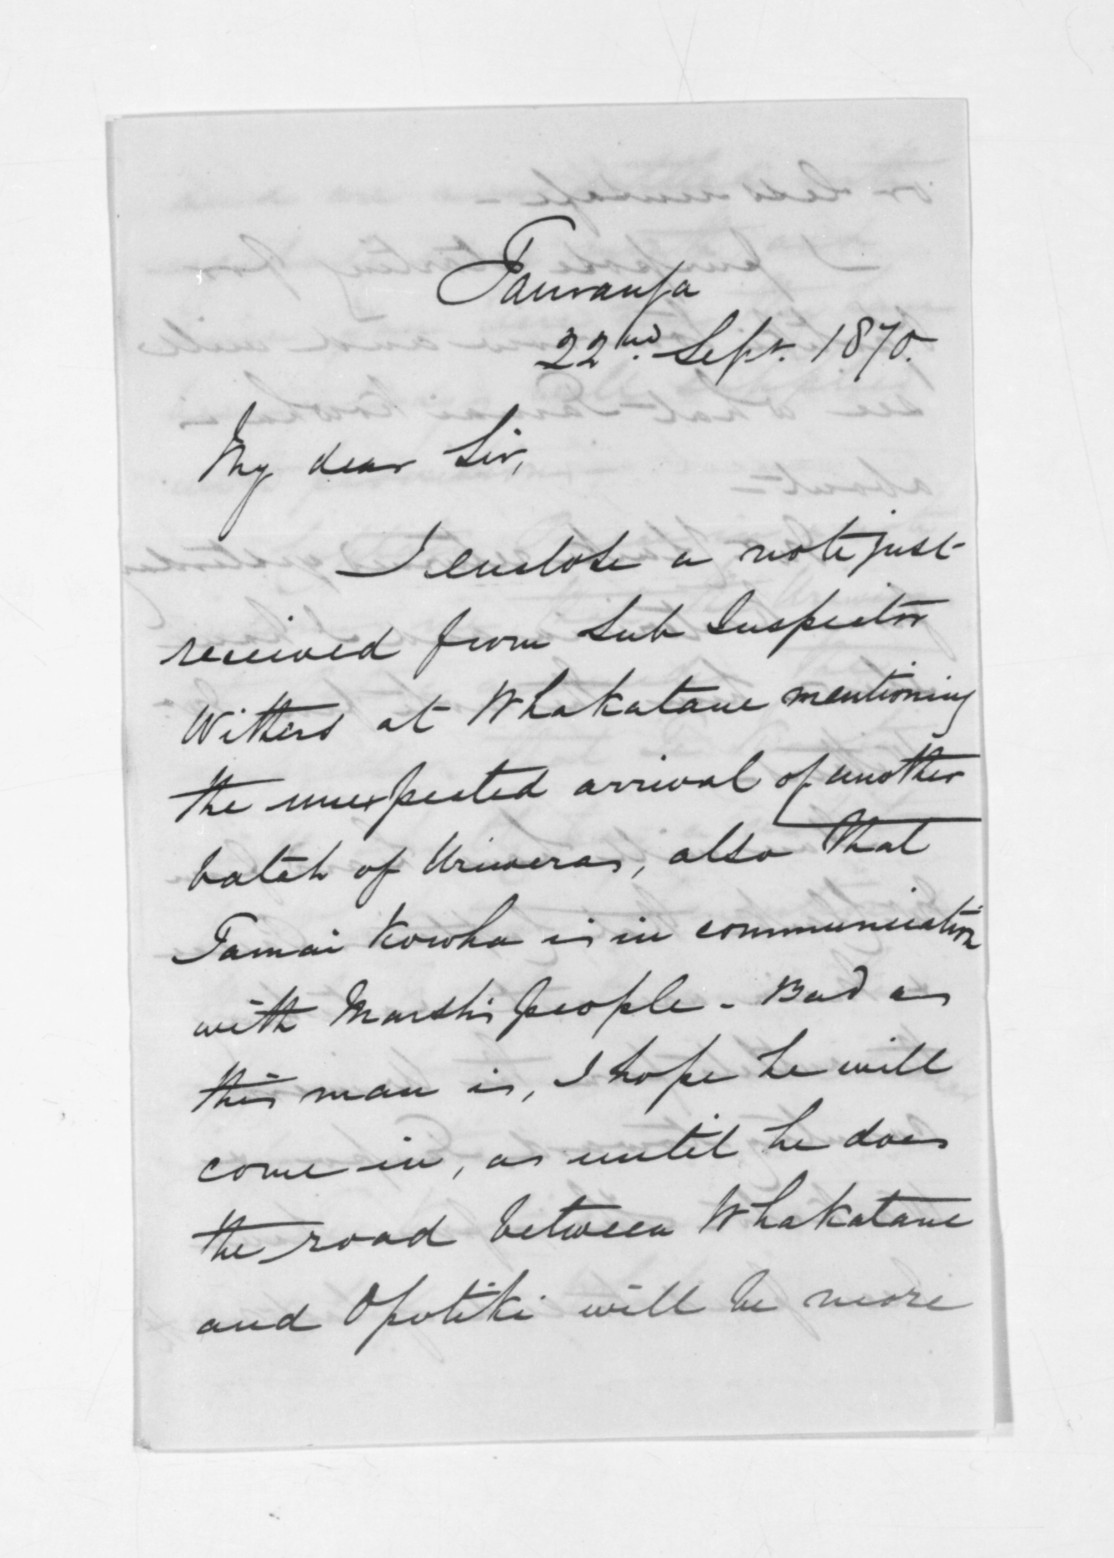 Tauranga
22nd. Sept. 1870.
My dear Sir,
I enclose a note just
received from Sub Inspector
Withers at Whakatane mentioning
the unexpected arrival of another
batch of Uriweras, also that
Tamai Kowha is in communication
with Marsh's people - Bad as
this man is, I hope he will
come in, as until he does
the road between Whakatane
and Opotiki will be more